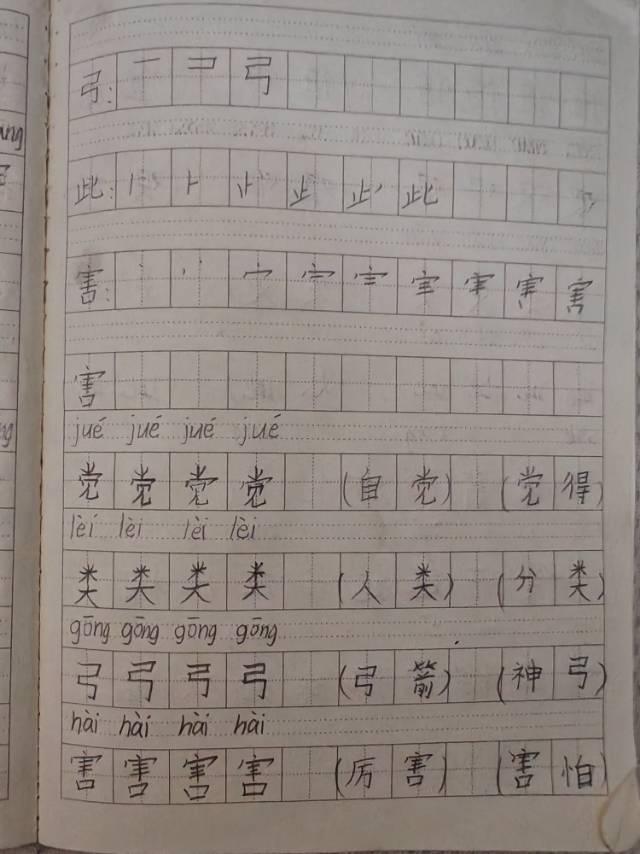 弓: 一 コ 弓
此: 丨 ⺊ 止 此
害: 丶 宀 害
害
jué jué jué jué
觉 觉 觉 觉 (自觉) (觉得)
lèi lèi lèi lèi
类 类 类 类 (人类) (分类)
gōng gōng gōng gōng
弓 弓 弓 弓 (弓箭) (神弓)
hài hài hài hài
害 害 害 害 (厉害) (害怕)